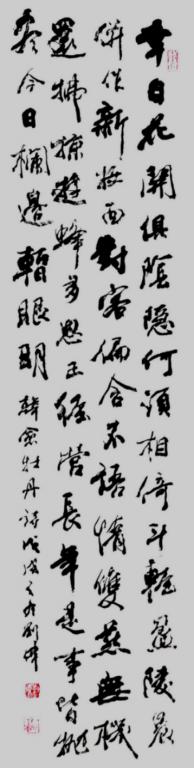 韋曰花開俱隂隱何須相倚斗輕盈陵晨
併作新妝面對客偏含不語情雙燕無機
還拂掠遊蜂多思正經營長年是事皆抛
尽今日欄邊暫眼明
韓偓牡丹詩戊戌之冬劉偉